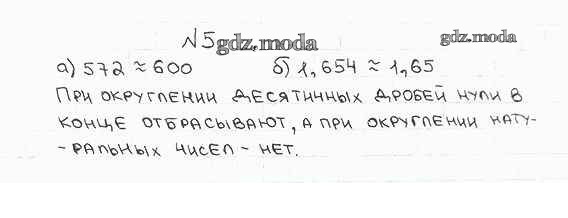 №5 gdz.moda gdz.moda
а) 572 ≈ 600 б) 1,654 ≈ 1,65
ПРИ ОКРУГЛЕНИИ ДЕСЯТИЧНЫХ ДРОБЕЙ НУЛИ В
КОНЦЕ ОТБРАСЫВАЮТ, А ПРИ ОКРУГЛЕНИИ НАТУ-
-РАЛЬНЫХ ЧИСЕЛ - НЕТ.